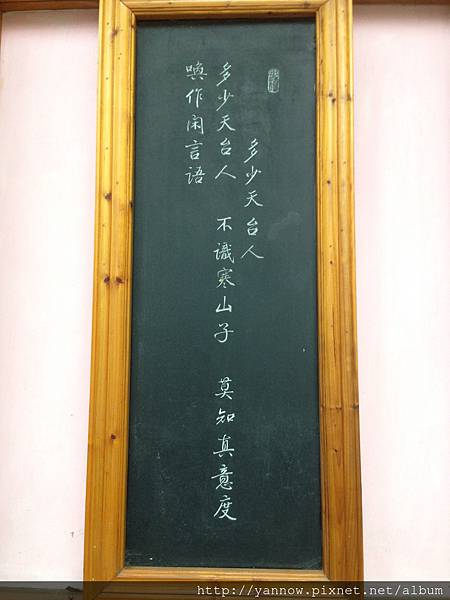 多少天台人
多少天台人 不識寒山子 莫知真意度
喚作閑言語
http://yannow.pixnet.net/album